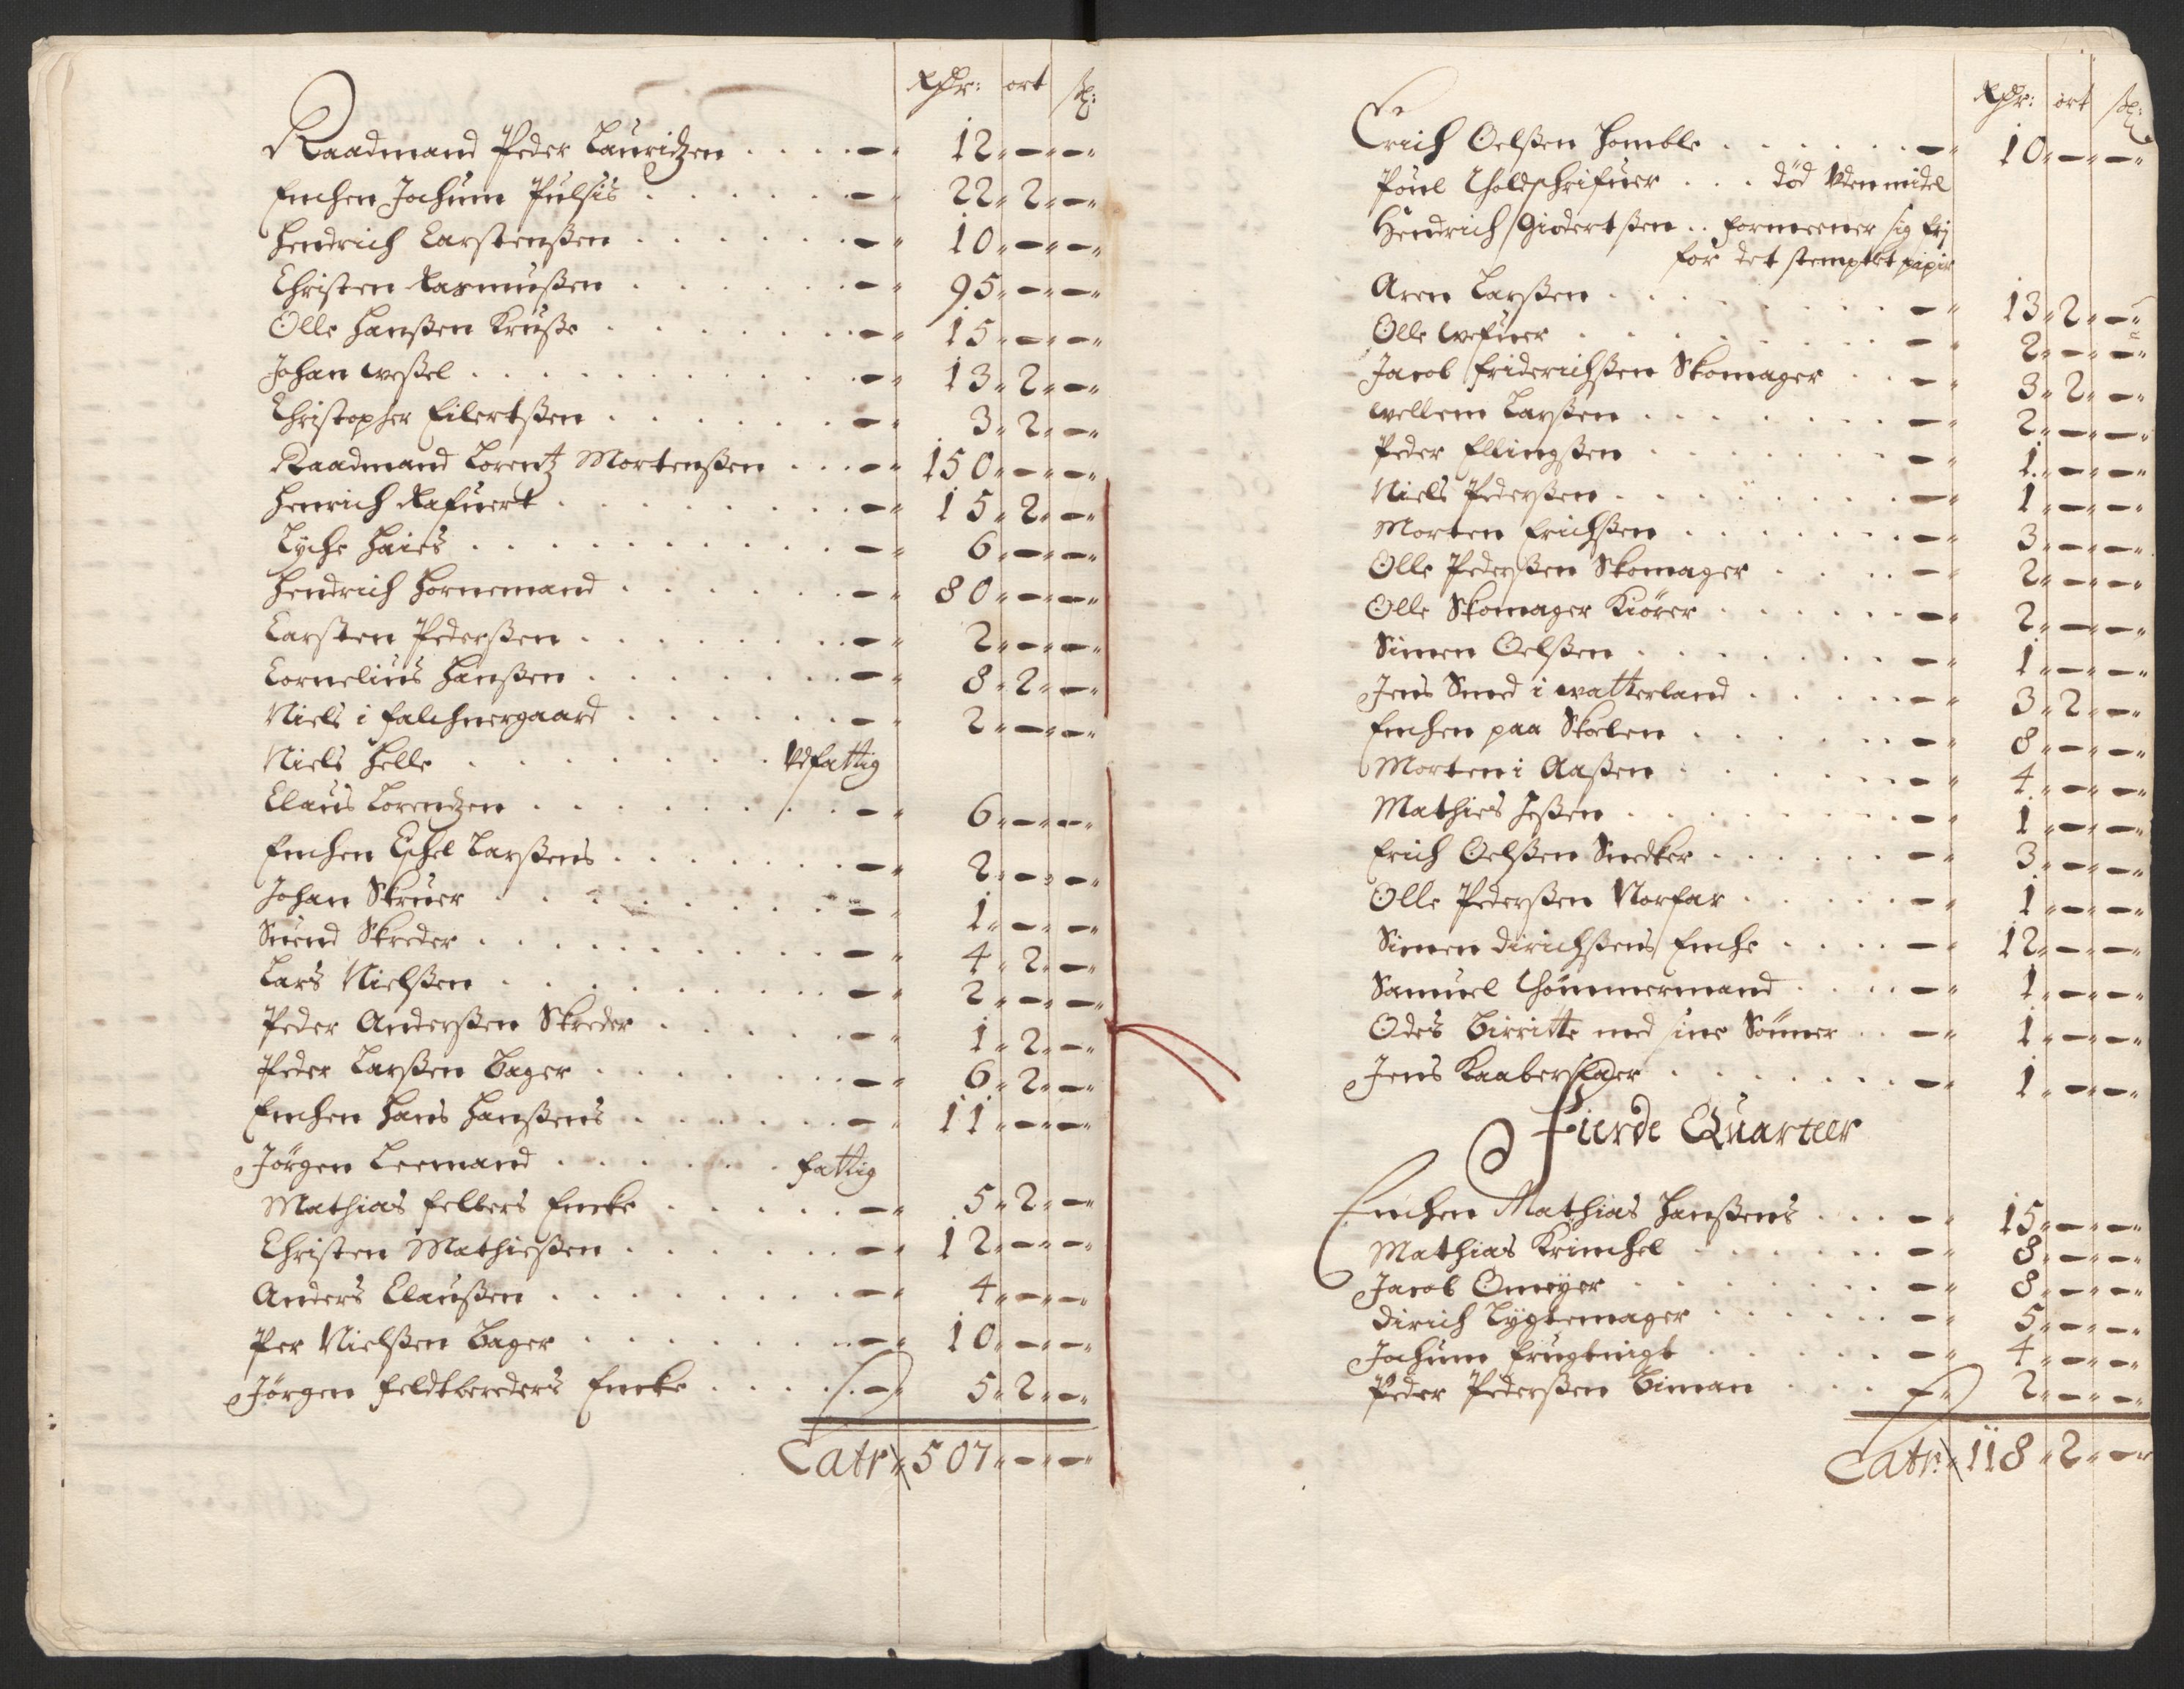 Rdr: ort sk:
Raadmand Peder Lauridzen . . . . — 12 „ — „ — „
Enchen Jochum Pulsis . . . . . — 22 „ 2 „ — „
Hendrich Carstensßen . . . . . — 10 „ — „ — „
Christen Rasmußen . . . . . — 95 „ — „ — „
Olle Hanßen Kruße . . . . . — 15 „ — „ — „
Johan Weßel . . . . . — 13 „ 2 „ — „
Christopher Eilertßen . . . . . — 3 „ 2 „ — „
Raadmand Lorentz Mortenßen . . . — 150 „ — „ — „
Henrich Rafuert . . . . . — 15 „ 2 „ — „
Lyche Haies . . . . . — 6 „ — „ — „
Hendrich Hornemand . . . . . — 80 „ — „ — „
Carsten Pederßen . . . . . — 2 „ — „ — „
Cornelius Hanßen . . . . . — 8 „ 2 „ — „
Niels i Falchnergaard . . . . . — 2 „ — „ — „
Niels Helle . . . . . Udfattig
Claus Lorendzen . . . . . — 6 „ — „ — „
Enchen Eschel Larßens . . . . . — 2 „ — „ — „
Johan Skruer . . . . . — 1 „ — „ — „
Suend Skreder . . . . . — 4 „ 2 „ — „
Lars Nielßen . . . . . — 2 „ — „ — „
Peder Anderßen Skreder . . . . . — 1 „ 2 „ — „
Peder Larßen Bager . . . . . — 6 „ 2 „ — „
Enchen Hans Hanßens . . . . . — 11 „ — „ — „
Jörgen Leemand . . . . . fattig
Mathias Felbers Encke . . . . . — 5 „ 2 „ — „
Christen Mathießen . . . . . — 12 „ — „ — „
Anders Claußen . . . . . — 4 „ — „ — „
Per Nielßen Bager . . . . . — 10 „ — „ — „
Jörgen Feldtbereders Encke . . . . . — 5 „ 2 „ — „
Latr „ 507 „ — „ — „
Rdr: ort sk:
Erich Oelßen Homble . . . . . — 10 „ — „ — „
Pouel Tholdschrifuer . . . död Uden midel
Hendrich Giödertßen . . formeener sig frj
for det stemplet papir
Aren Larßen . . . . . — 13 „ 2 „ — „
Olle Wefuer . . . . . — 2 „ — „ — „
Jacob Friderichßen Skomager . . — 3 „ 2 „ — „
Wellem Larßen . . . . . — 2 „ — „ — „
Peder Ellingßen . . . . . — 1 „ — „ — „
Niels Pederßen . . . . . — 1 „ — „ — „
Morten Erichßen . . . . . — 3 „ — „ — „
Olle Pederßen Skomager . . . . — 2 „ — „ — „
Olle Skomager Kiörer . . . . . — 2 „ — „ — „
Simen Oelßen . . . . . — 1 „ — „ — „
Jens Smed i Watterland . . . . . — 3 „ 2 „ — „
Enchen paa Skolen . . . . . — 8 „ — „ — „
Morten i Aaßen . . . . . — 4 „ — „ — „
Mathies Jeßen . . . . . — 1 „ — „ — „
Erich Oelßen Snedker . . . . . — 3 „ — „ — „
Olle Pederßen Norfar . . . . . — 1 „ — „ — „
Simen Dirichßens Enche . . . . — 12 „ — „ — „
Samuel Thömmermand . . . . — 1 „ — „ — „
Odes Birritte med sine Sönner . . — 1 „ — „ — „
Jens Kaaberslager . . . . . — 1 „ — „ — „
Fierde Quarteer
Enchen Mathias Hanßens . . . — 15 „ — „ — „
Mathias Krinchel . . . . . — 8 „ — „ — „
Jacob Omeyer . . . . . — 8 „ — „ — „
Dirich Lygtemager . . . . . — 5 „ — „ — „
Jochum Frugtnigt . . . . . — 4 „ — „ — „
Peder Pederßen Biman . . . . — 2 „ — „ — „
Latr: „ 118 „ 2 „ — „